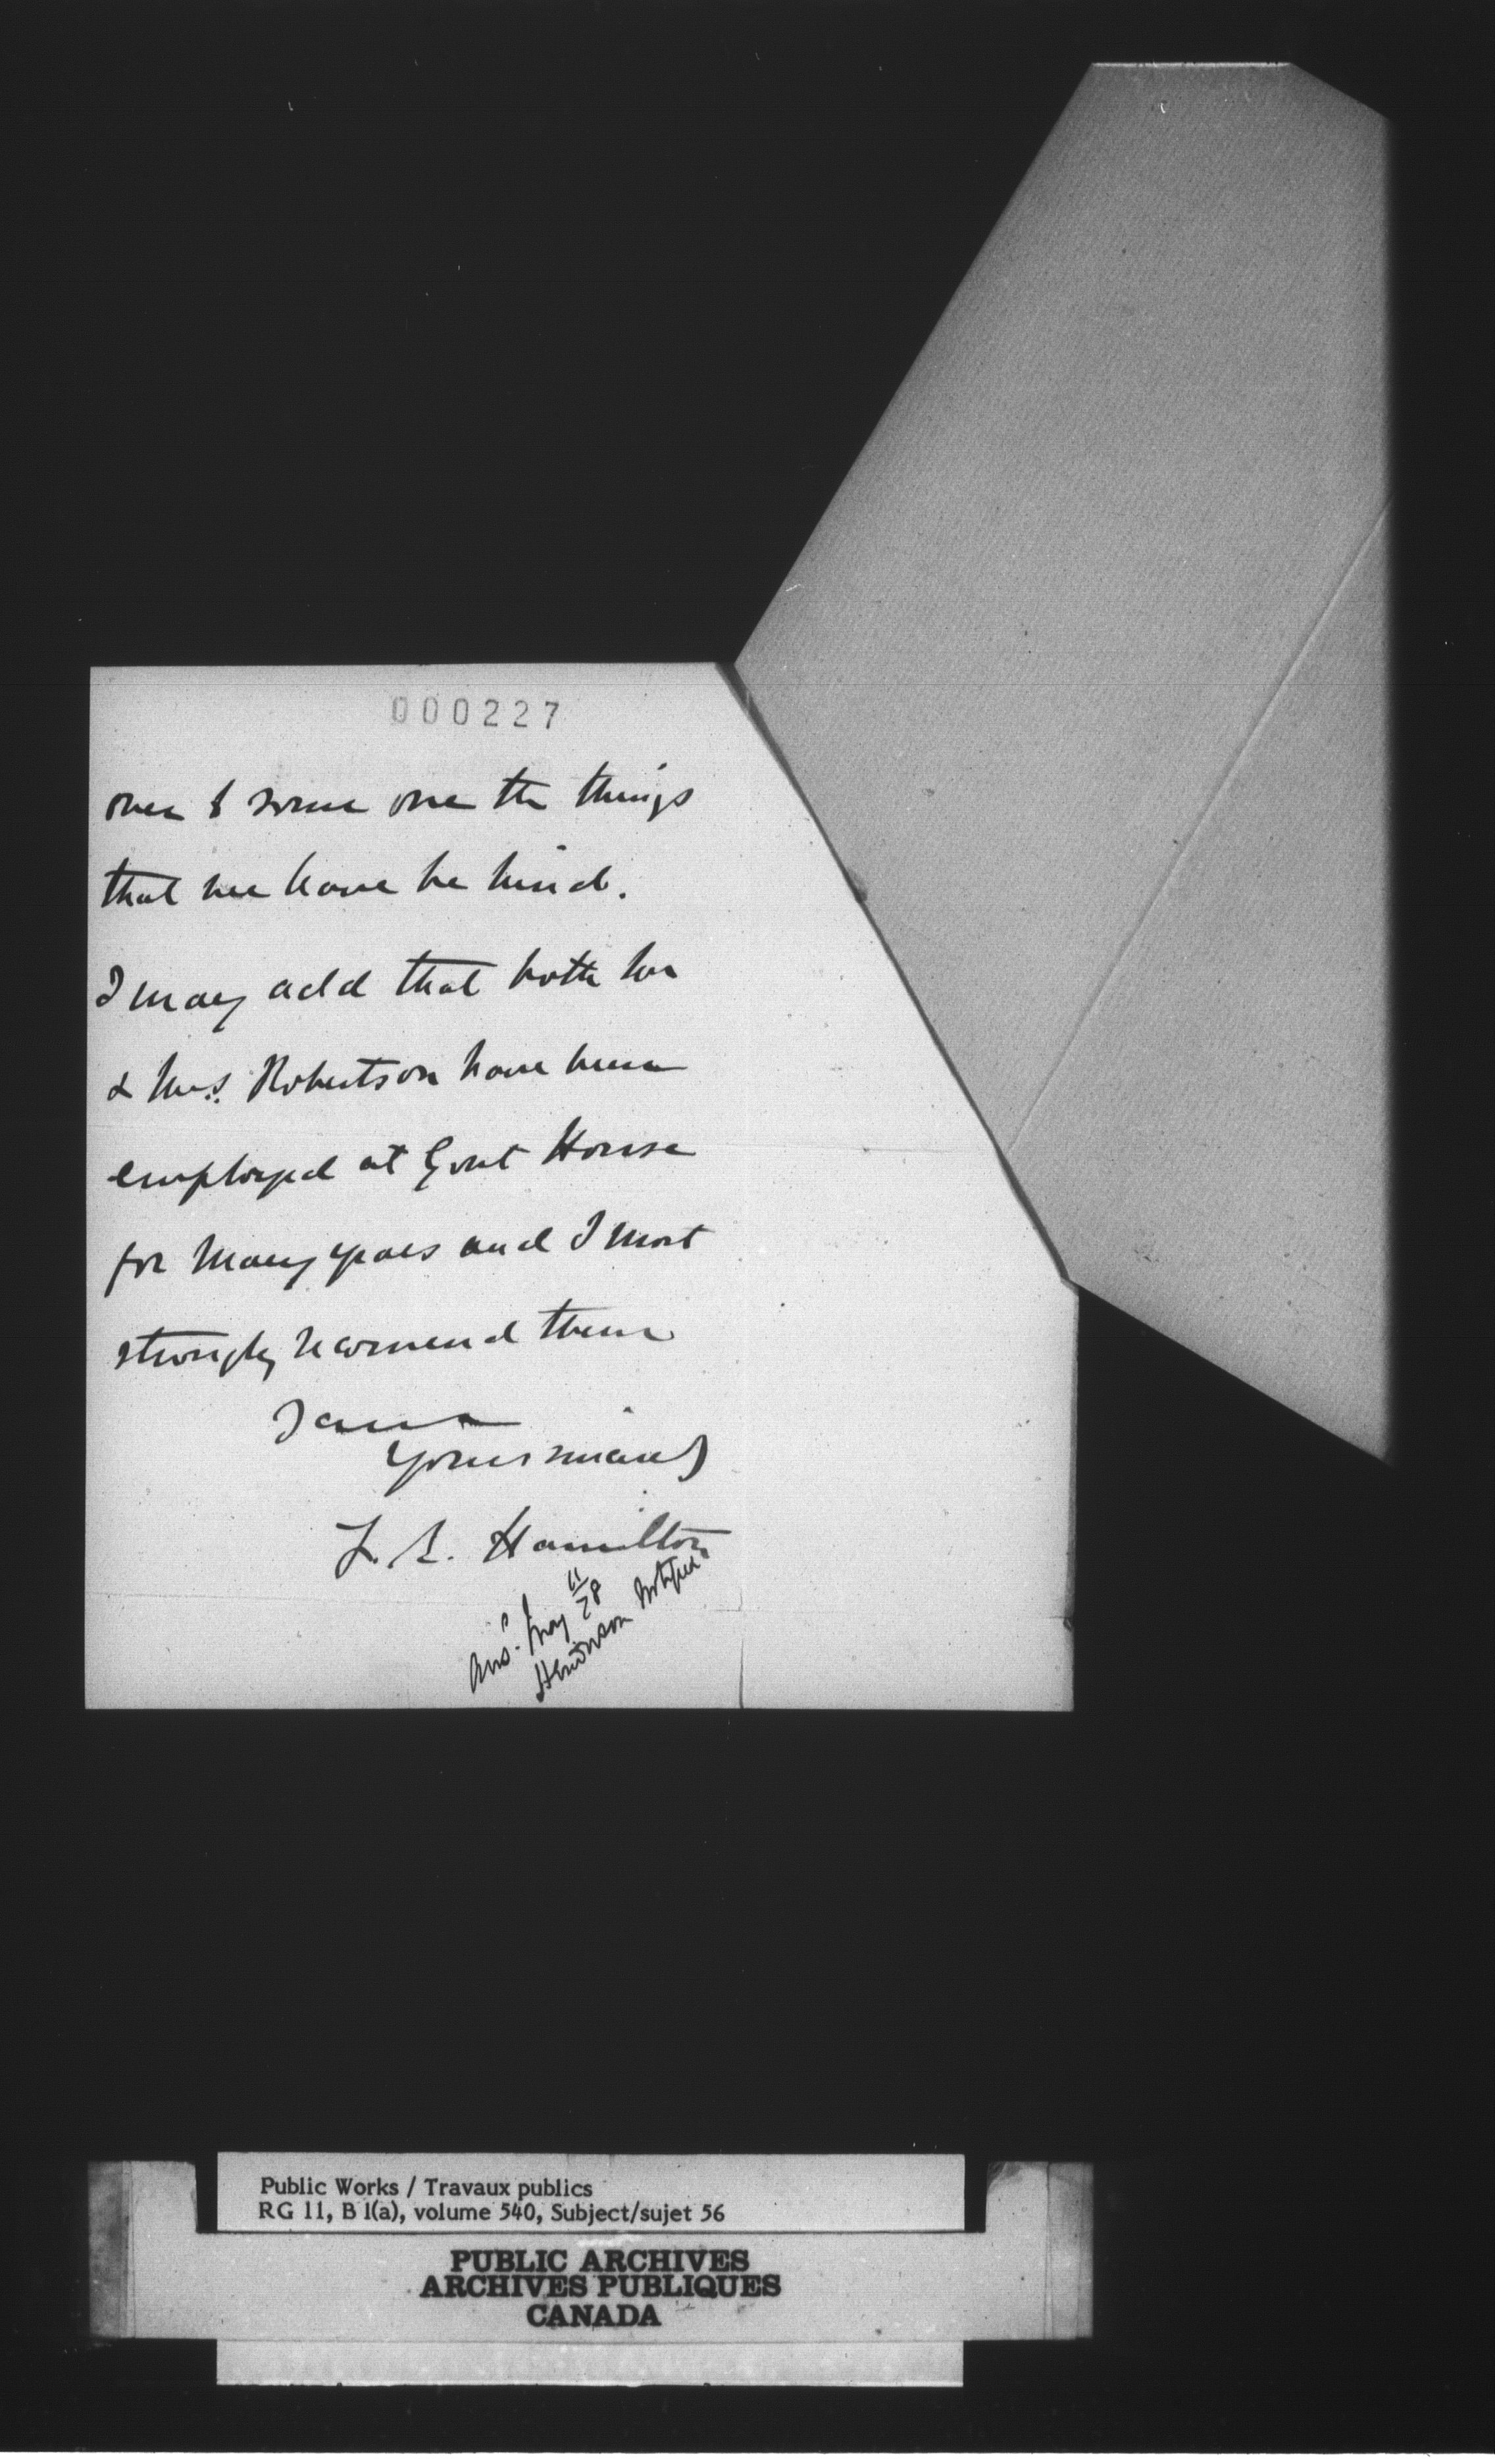 000227
over to some one the things
that we leave behind.
I may add that both he
& Mrs. Robertson have been
employed at Govt House
for Many years and I most
strongly recomend them
I am
yours sincerely
F. L. Hamilton
Ans.d May 11/78
Henderson Notified
Public Works / Travaux publics
RG 11, B 1(a), volume 540, Subject/sujet 56
PUBLIC ARCHIVES
ARCHIVES PUBLIQUES
CANADA